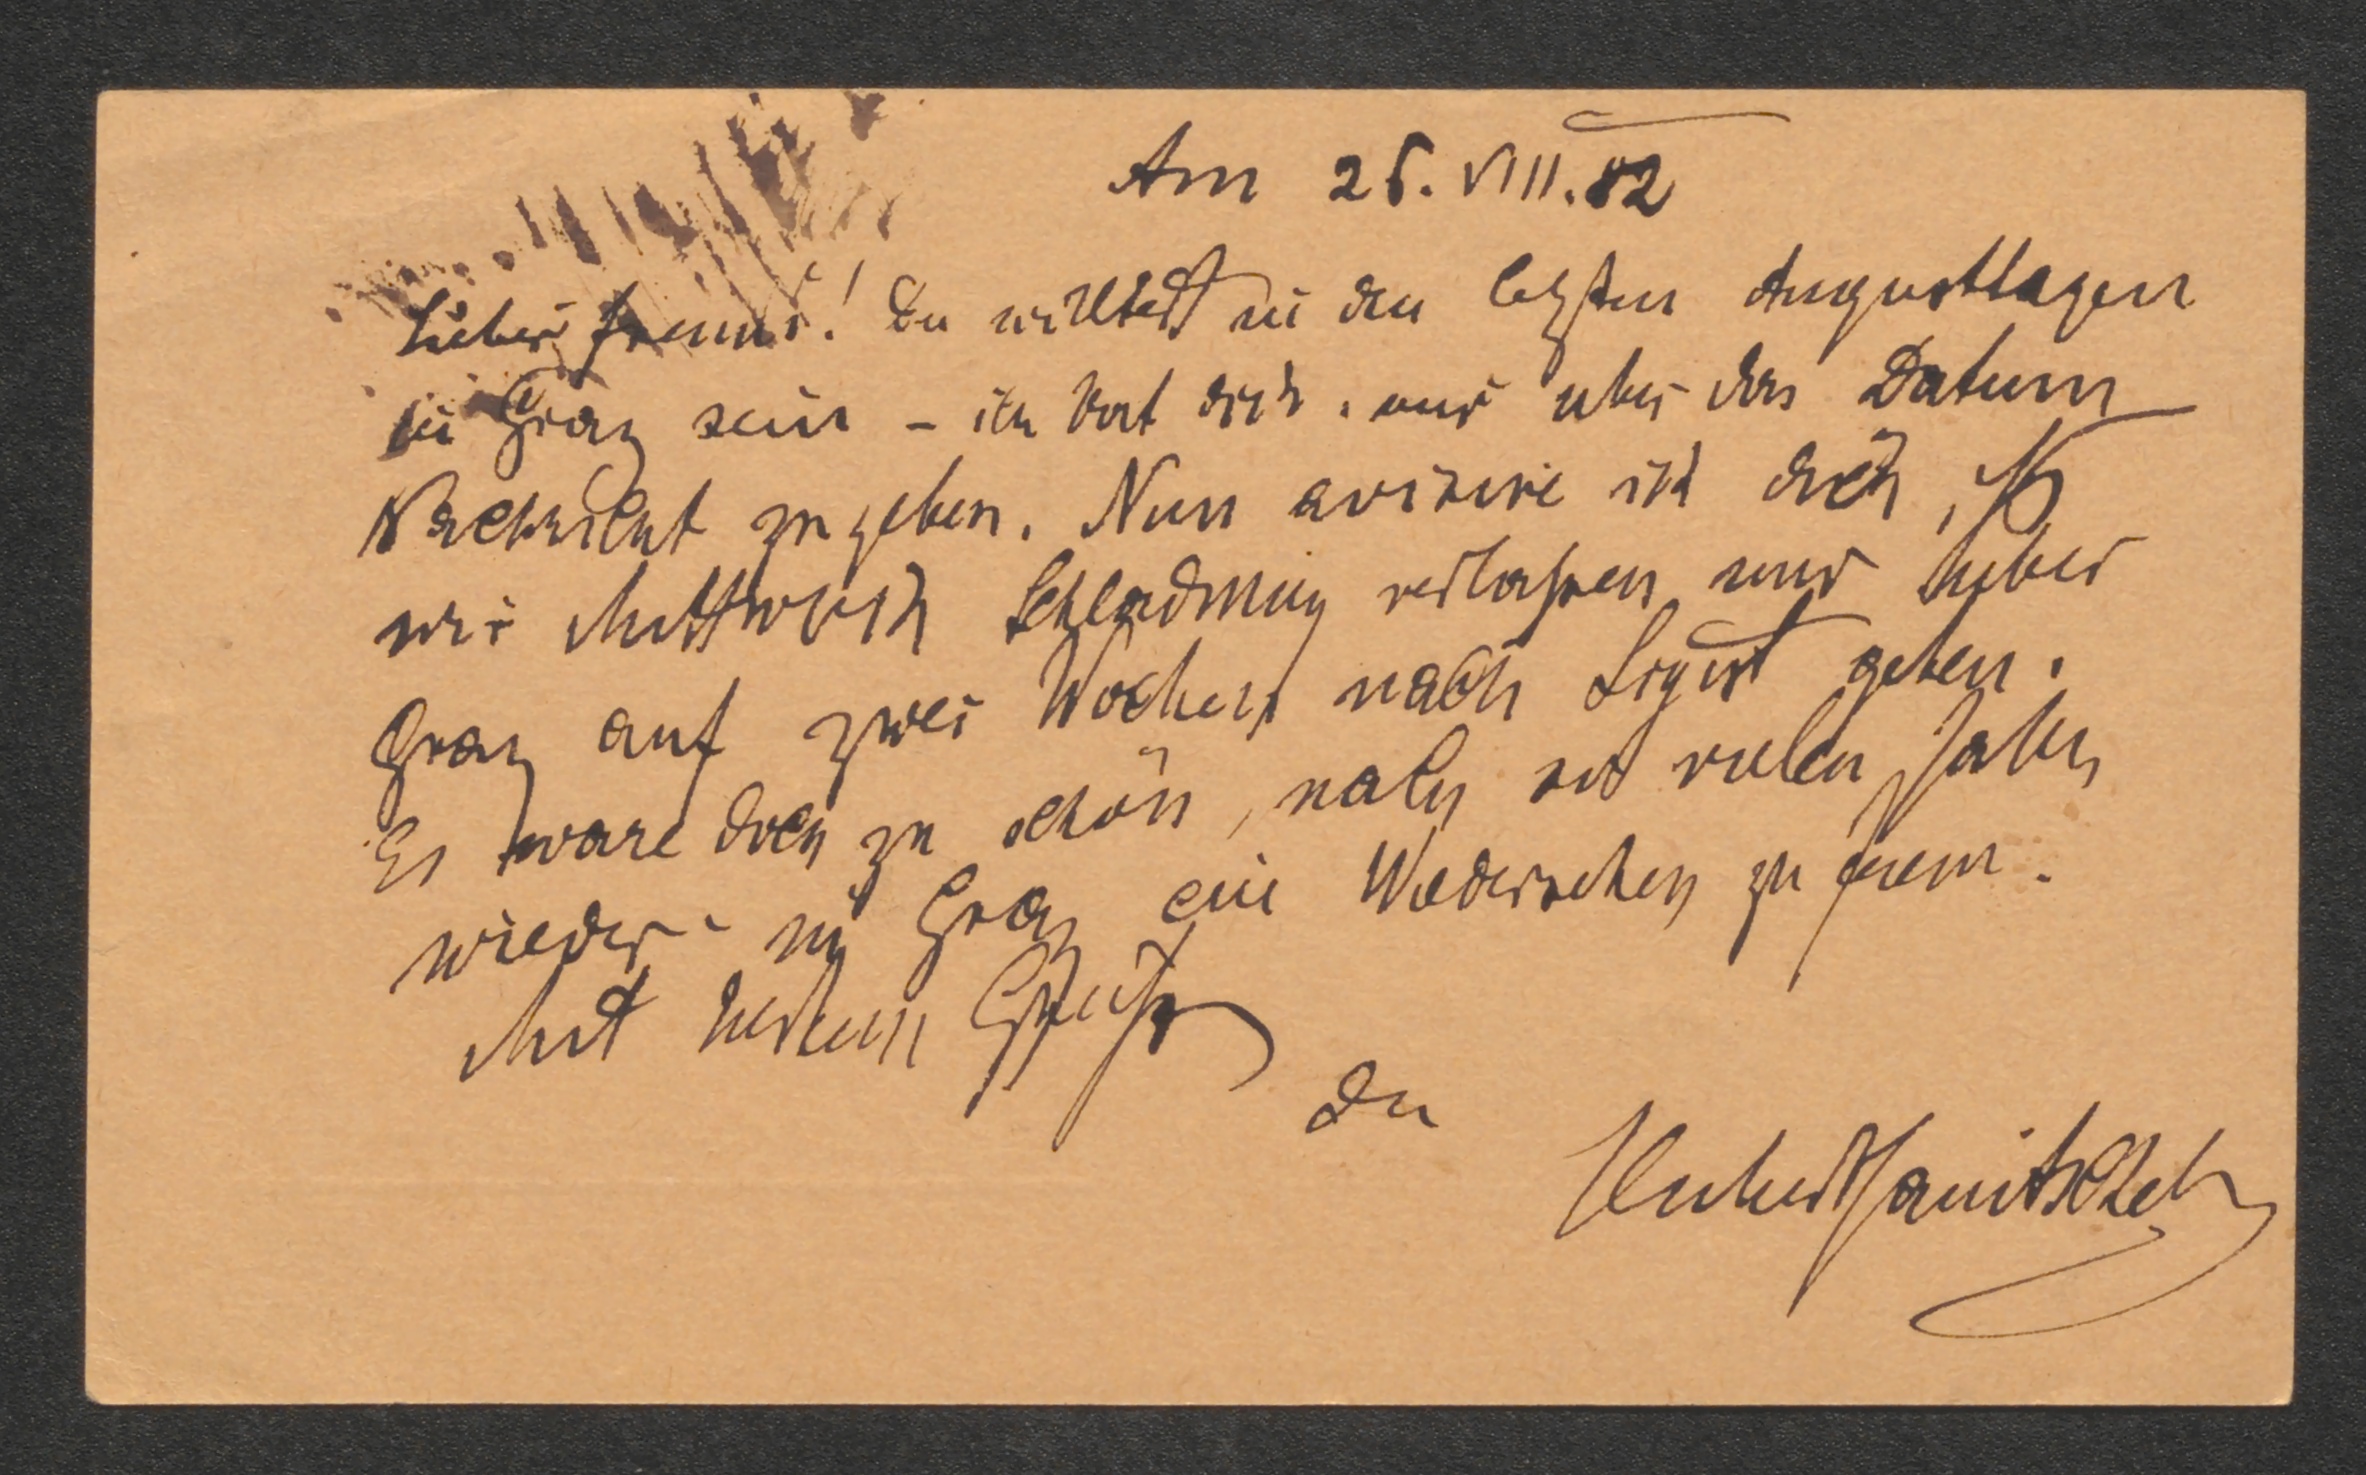 Am 26. VIII. 82
Lieber Freund! Du wolltest in den letzten Augusttagen
in Graz sein – ich bat dich, mir über das Datum
Nachricht zu geben. Nun avisire ich dich, daß
wir Mittwoch Schladming verlassen und über
Graz auf zwei Wochen nach Ligist gehen.
Es wäre doch zu schön, nach so vielen Jahren
wieder in Graz ein Wiedersehen zu feiern.
Mit bestem Gruße
Dein
Hubert Janitschek